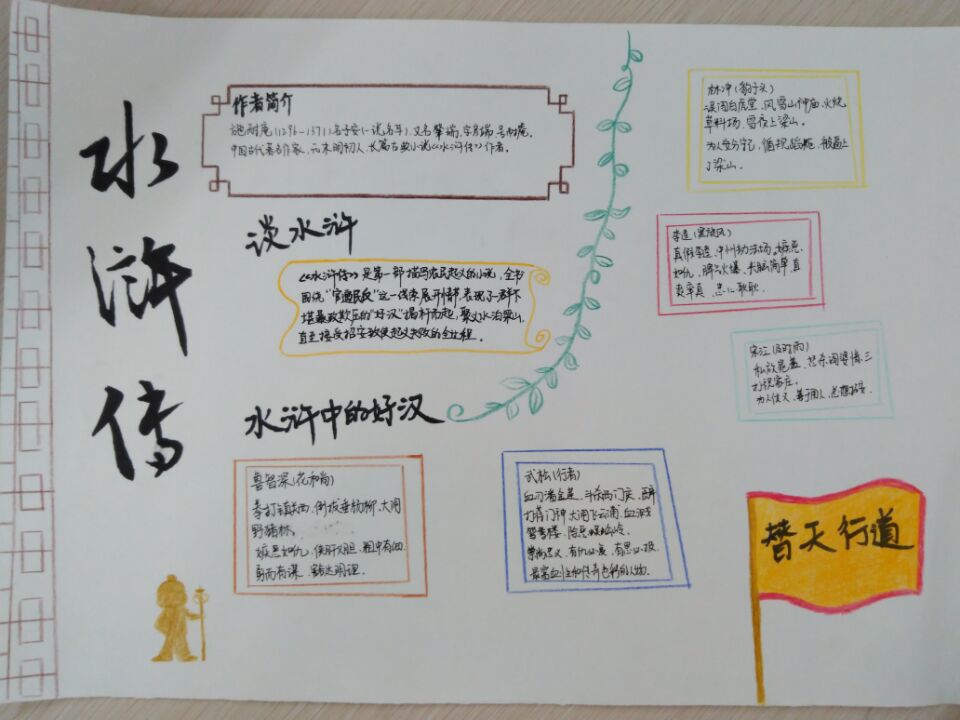 水
浒
传
作者简介
施耐庵(1296-1371)名子安(一说名耳),又名肇瑞,字彦端,号耐庵。
中国古代著名作家,元末明初人,长篇古典小说《水浒传》作者。
谈水浒
《水浒传》是第一部描写农民起义的小说,全书
围绕“官逼民反”这一线索展开情节,表现了一群不
堪暴政欺压的“好汉”揭竿而起,聚义水泊梁山,
直至接受招安致使起义失败的全过程。
水浒中的好汉
鲁智深(花和尚)
拳打镇关西、倒拔垂杨柳、大闹
野猪林。
嫉恶如仇、侠肝义胆、粗中有细、
勇而有谋、豁达明理。
武松(行者)
血刃潘金莲、斗杀西门庆、醉
打蒋门神、大闹飞云浦、血溅
鸳鸯楼、除恶蜈蚣岭。
崇尚忠义、有仇必复、有恩必报
最富血性和传奇色彩的人物.
林冲(豹子头)
误闯白虎堂、风雪山神庙、火烧
草料场、雪夜上梁山。
为人安分守己、循规蹈矩、被逼上
了梁山。
李逵(黑旋风)
真假李逵、江州劫法场、嫉恶
如仇、脾气火爆、头脑简单、直
爽率真、忠心耿耿.
宋江(及时雨)
私放晁盖、怒杀阎婆惜、三
打祝家庄。
为人仗义、善于用人、总想招安.
替天行道